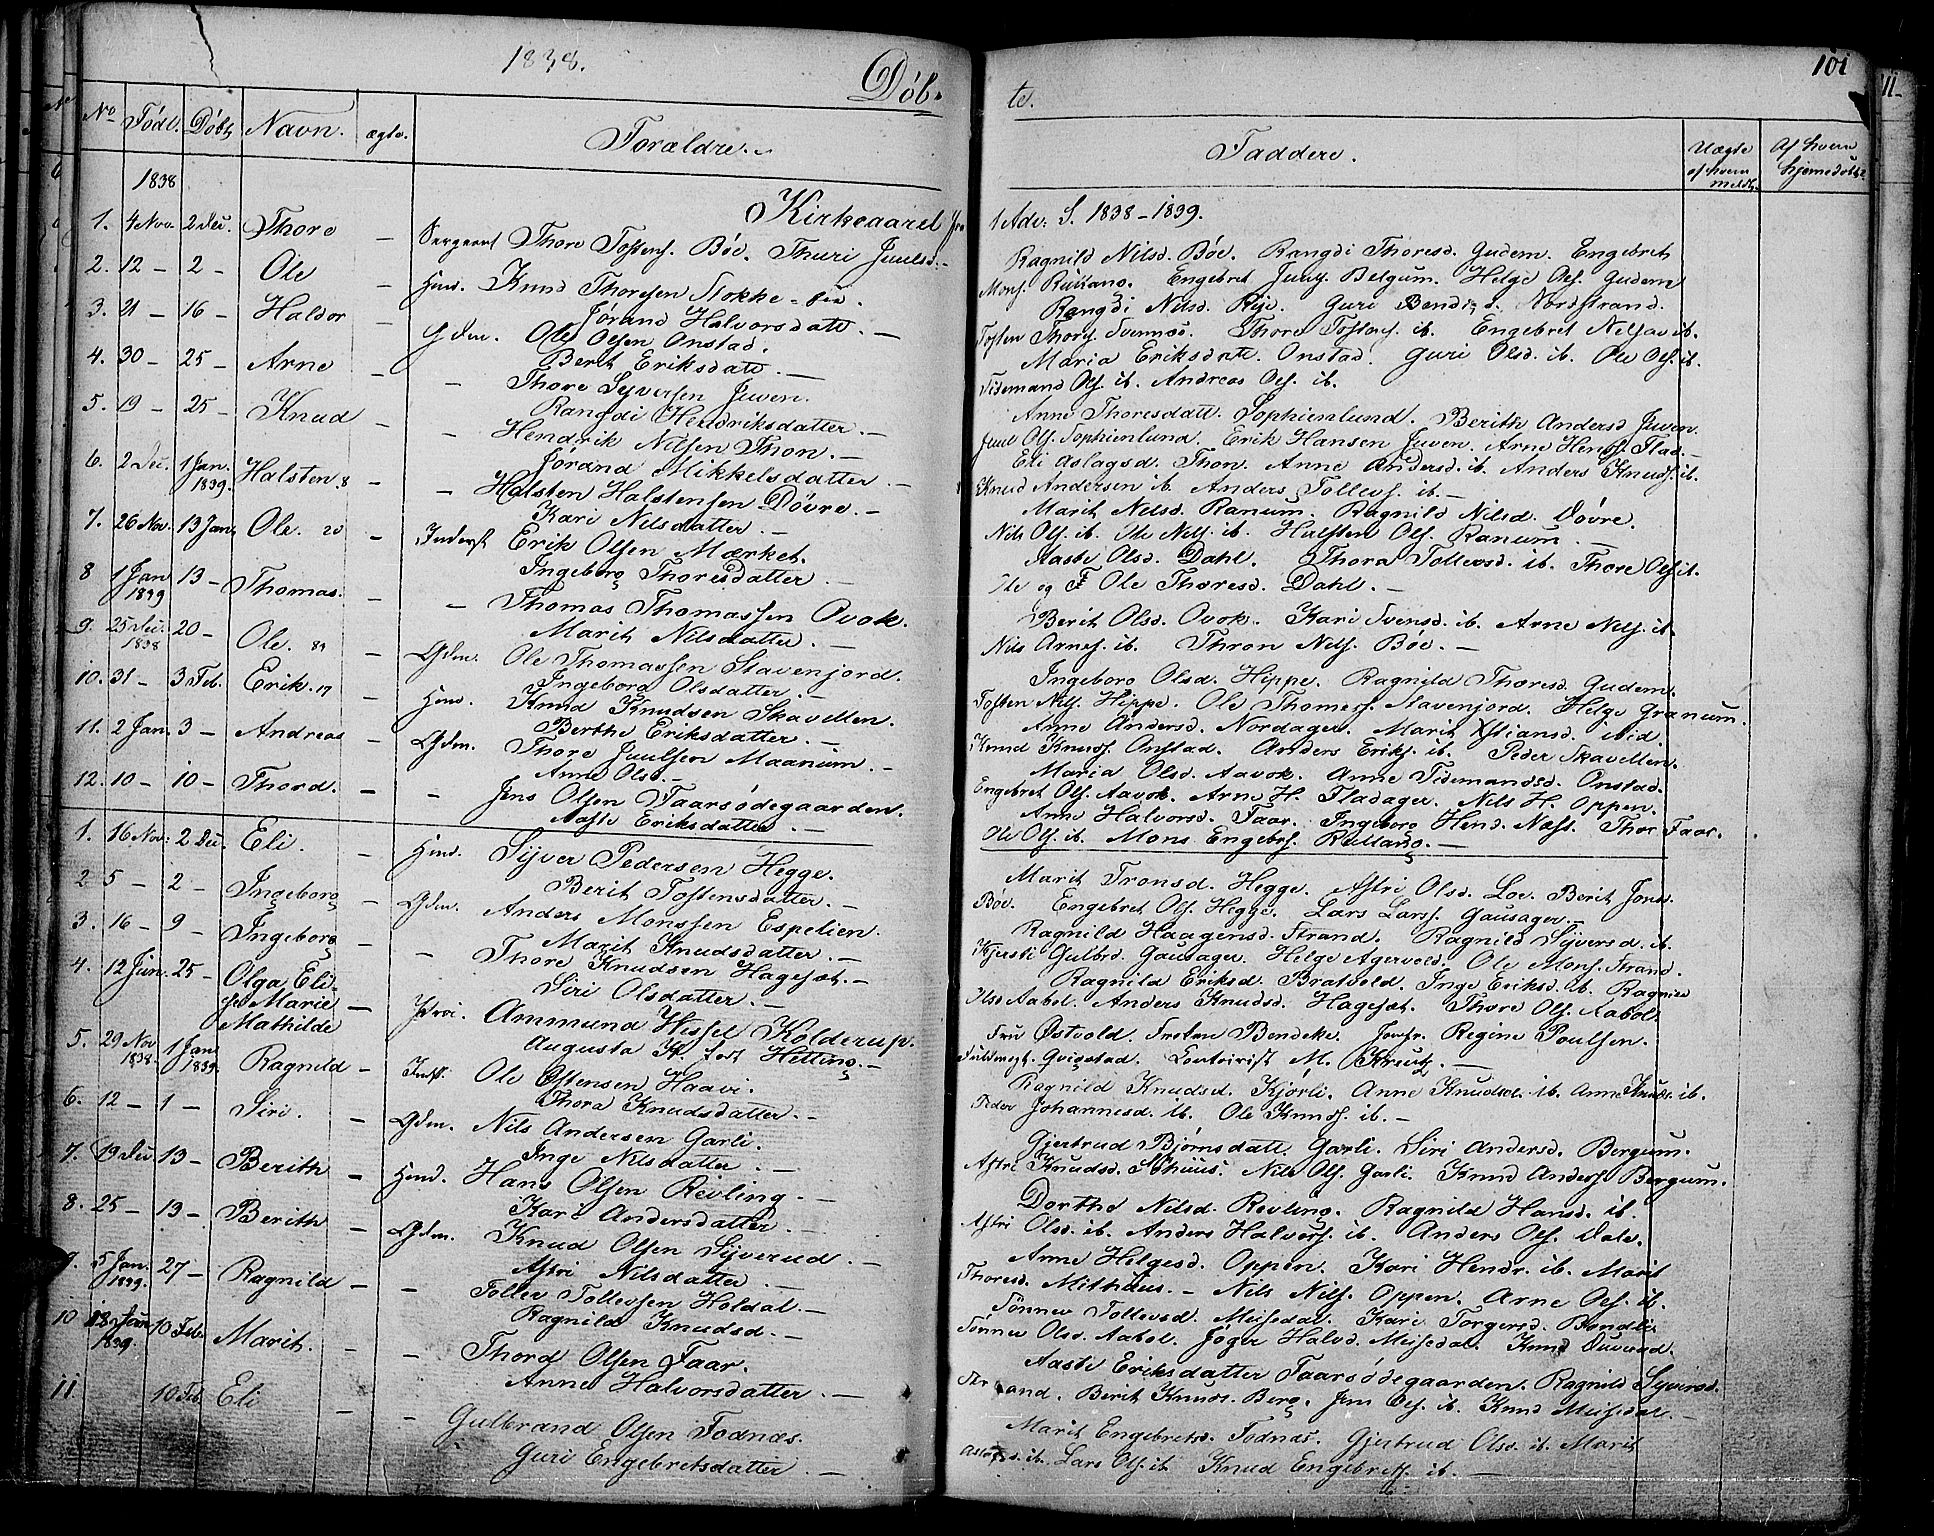 1838.
Døb-
No Født. Døbt Navn. ægte. Forældre.
1838
Kirkeaaret fra
1. 4 Nov. 2 Dec. Thore — Sergeant Thore Tostens. Bøe. Thuri Juulsd. —
2. 12 — 2 — Ole — Huusm. Knud Thoresen Stokke-
Jorand Halvorsdatt. —
3. 21 — 16 — Haldor — Gdm. Ole Olsen Onstad.
Berit Eriksdatt. —
4. 30 — 25 — Arne — — Thore Syversen Juven.
Rangdi Hendriksdatter. —
5. 19 — 25 — Knud — — Hendrik Nilsen Thon. —
Jørand Mikkelsdatter. —
6. 2 Dec. 1 Jan. 1839. Halsten. 8 — — Halsten Halstensen Døvre. —
Kari Nilsdatter. —
7. 26 Nov. 13 Jan. Ole. 20 — Inderst Erik Olsen Mærket.
Ingeborg Thoresdatter. —
8 1 Jan 1839 13 — Thomas. — — Thomas Thomassen Ovok.
Marit Nilsdatter. —
9. 25 Dec. 1838 20 — Ole. — Gdm. Ole Thomassen Stavenjord.
Ingeborg Olsdatter. —
10. 31 — 3 Feb. Erik. 17 — Huusm. Knud Knudsen Skavellen.
Berthe Eriksdatter. —
11. 2 Jan. 3 — Andreas — Gdm. Thore Juulsen Maanum. —
Anne Olsd. —
12. 10 — 10 — Thord. — — Jens Olsen Faarsødegaarden.
Aaste Eriksdatter. —
1. 16 Nov. 2 Dec. Eli. — Huusm. Syver Pedersen Hegge.
Berit Tostensdatter. —
2 5 — 2 — Ingeborg — Gdm. Anders Monssen Espelien.
Marit Knudsdatter. —
3. 16 — 9 — Ingeborg — — Thore Knudsen Hagesæt. —
Siri Olsdatter. —
4. 12 Jun. 25 — Olga Eli-
se Marie — Proc. Ammund Hissel Kolderup.
Mathilde Augusta Hetting. —
5. 29 Nov 1838. 1 Jan 1839. Ragnild — Indst. Ole Østensen Haavi.
Thora Knudsdatter. —
6. 12 — 1 — Siri. — Gdm. Nils Andersen Garli.
Inge Nilsdatter. —
7. 19 Dec 13 — Berith — Huusm. Hans Olsen Revling. —
Kari Andersdatter. —
8. 25 — 13 — Berith — Gdm. Knud Olsen Syverud. —
Astri Nilsdatter. —
9. 5 Jan. 1839. 27 — Ragnild — — Tollev Tollevsen Holdal. —
Ragnild Knudsd. —
10 18 Jan 1839. 10 Feb. Marit. — — Thord Olsen Faar.
Anne Halvorsdatter. —
11 10 Feb. Eli — — Gulbrand Olsen Fodnæs.
Guri Engebretsdatter. —
101
te.
Faddere.
Uægte af hvem meldt.
Af hvem hjemedøbt.
1 Adv. S. 1838 - 1839.
Ragnild Nilsd. Bøe. Rangdi Thoresd. Gudem. Engebret
Mons. Rulland. Engebret Juuls. Belgum. Helge Ols. Gudem
Rangdi Nilsd. Rye. Guri Bendixd. Nordstrand.
Tosten Thors. Svennæs. Thore Tostens. ib. Engebret Nilsen ib.
Maria Eriksdatt. Onstad. Guri Olsd. ib. Ole Ols. ib.
Tidemand Ols. ib. Andreas Ols. ib.
Anne Thoresdatt. Sophienlund. Berith Andersd Juven.
Juul Ols. Sophienlund. Erik Hansen Juven. Arne Hends. Flad. —
Eli Aslagsd. Thon. Anne Andersd. ib. Anders Knuds. ib.
Knud Andersen ib. Anders Tollevs. ib. —
Marit Nilsd. Ranum. Ragnild Nilsd. Døvre.
Nils Ols. ib. Ole Nils. ib. Halsten Ols. Ranum. —
Aaste Olsd. Dahl. Thora Tollevsd. ib. Thore Ols. ib.
Ole og Ole Thoresd. Dahl. —
Berit Olsd. Ovok. Kari Svensd. ib. Arne Nils. ib.
Nils Arnes. ib. Thron Nils. Bøe. —
Ingeborg Olsd. Hippe. Ragnild Thoresd. Gudem.
Tosten Nils. Hippe. Ole Thomass. Stavenjord. Helge Granum.
Anne Andersd. Nordager. Marit Xstiansd. ibid.
Knud Knuds. Onstad. Anders Eriks. ib. Peder Skavellen.
Maria Olsd. Aavok. Anne Tidemandsd. Onstad.
Engebret Ols. Aavok. Arne H. Fladager. Nils H. Oppen.
Anne Halvorsd. Faar. Ingeborg Hend. Næss. Thor Faar.
Ole Ols. ib. Mons Engebrs. Rulland. —
Marit Tronsd. Hegge. Astri Olsd. Loe. Berit Jonsd.
Bøe. Engebret Ols. Hegge. Lars Lars. Gausager. —
Ragnild Haagensd. Strand. Ragnild Syversd. ib.
Kjersti Gulbrd. Gausager. Helge Agervold. Ole Mons. Strand.
Ragnild Eriksd. Bratvold. Inge Eriksd. ib. Ragnild
Olsd Aabol. Anders Knudsd. Hagesæt. Thore Ols. Aabol.
Fru Østvold. Frøken Bendeke. Jomfr. Regine Poulsen.
Fuldmegt. Qvigstad. Contoirist M. Kreutz. —
Ragnild Knudsd. Kjorli. Anne Knudsd. ib. Anne Knuds. ib.
Peder Johannesd. ib. Ole Knuds. ib. —
Gjertrud Bjørnsdatt. Garli. Siri Andersd. Bergum.
Astri Knudsd. Nils Ols. Garli. Knud Anders. Bergum.
Dorthe Nilsd. Revling. Ragnild Hansd. ib.
Astri Olsd. ib. Anders Halvors. ib. Anders Ols. Dale.
Anne Helgesd. Oppen. Kari Hendr. ib. Marit
Thoresd. Midthuus. — Nils Nils. Oppen. Arne Ols. ib.
Tønnes Tollevsd. Meisedal. Kari Torgersd. Bendli.
Tønnes Olsd. Aabol. Jøger Halvd. Meisedal. Knud
Aaste Eriksdatter Faarsødegaarden. Ragnild Syversd.
Strand. Berit Knuds. Berg. Jens Ols. ib. Knud Meisedal. —
Marit Engebretsd. Fodnæs. Gjertrud Olsd. ib. Marit
Aslagsd. ib. Lars Ols. ib. Knud Engebrets. ib. —